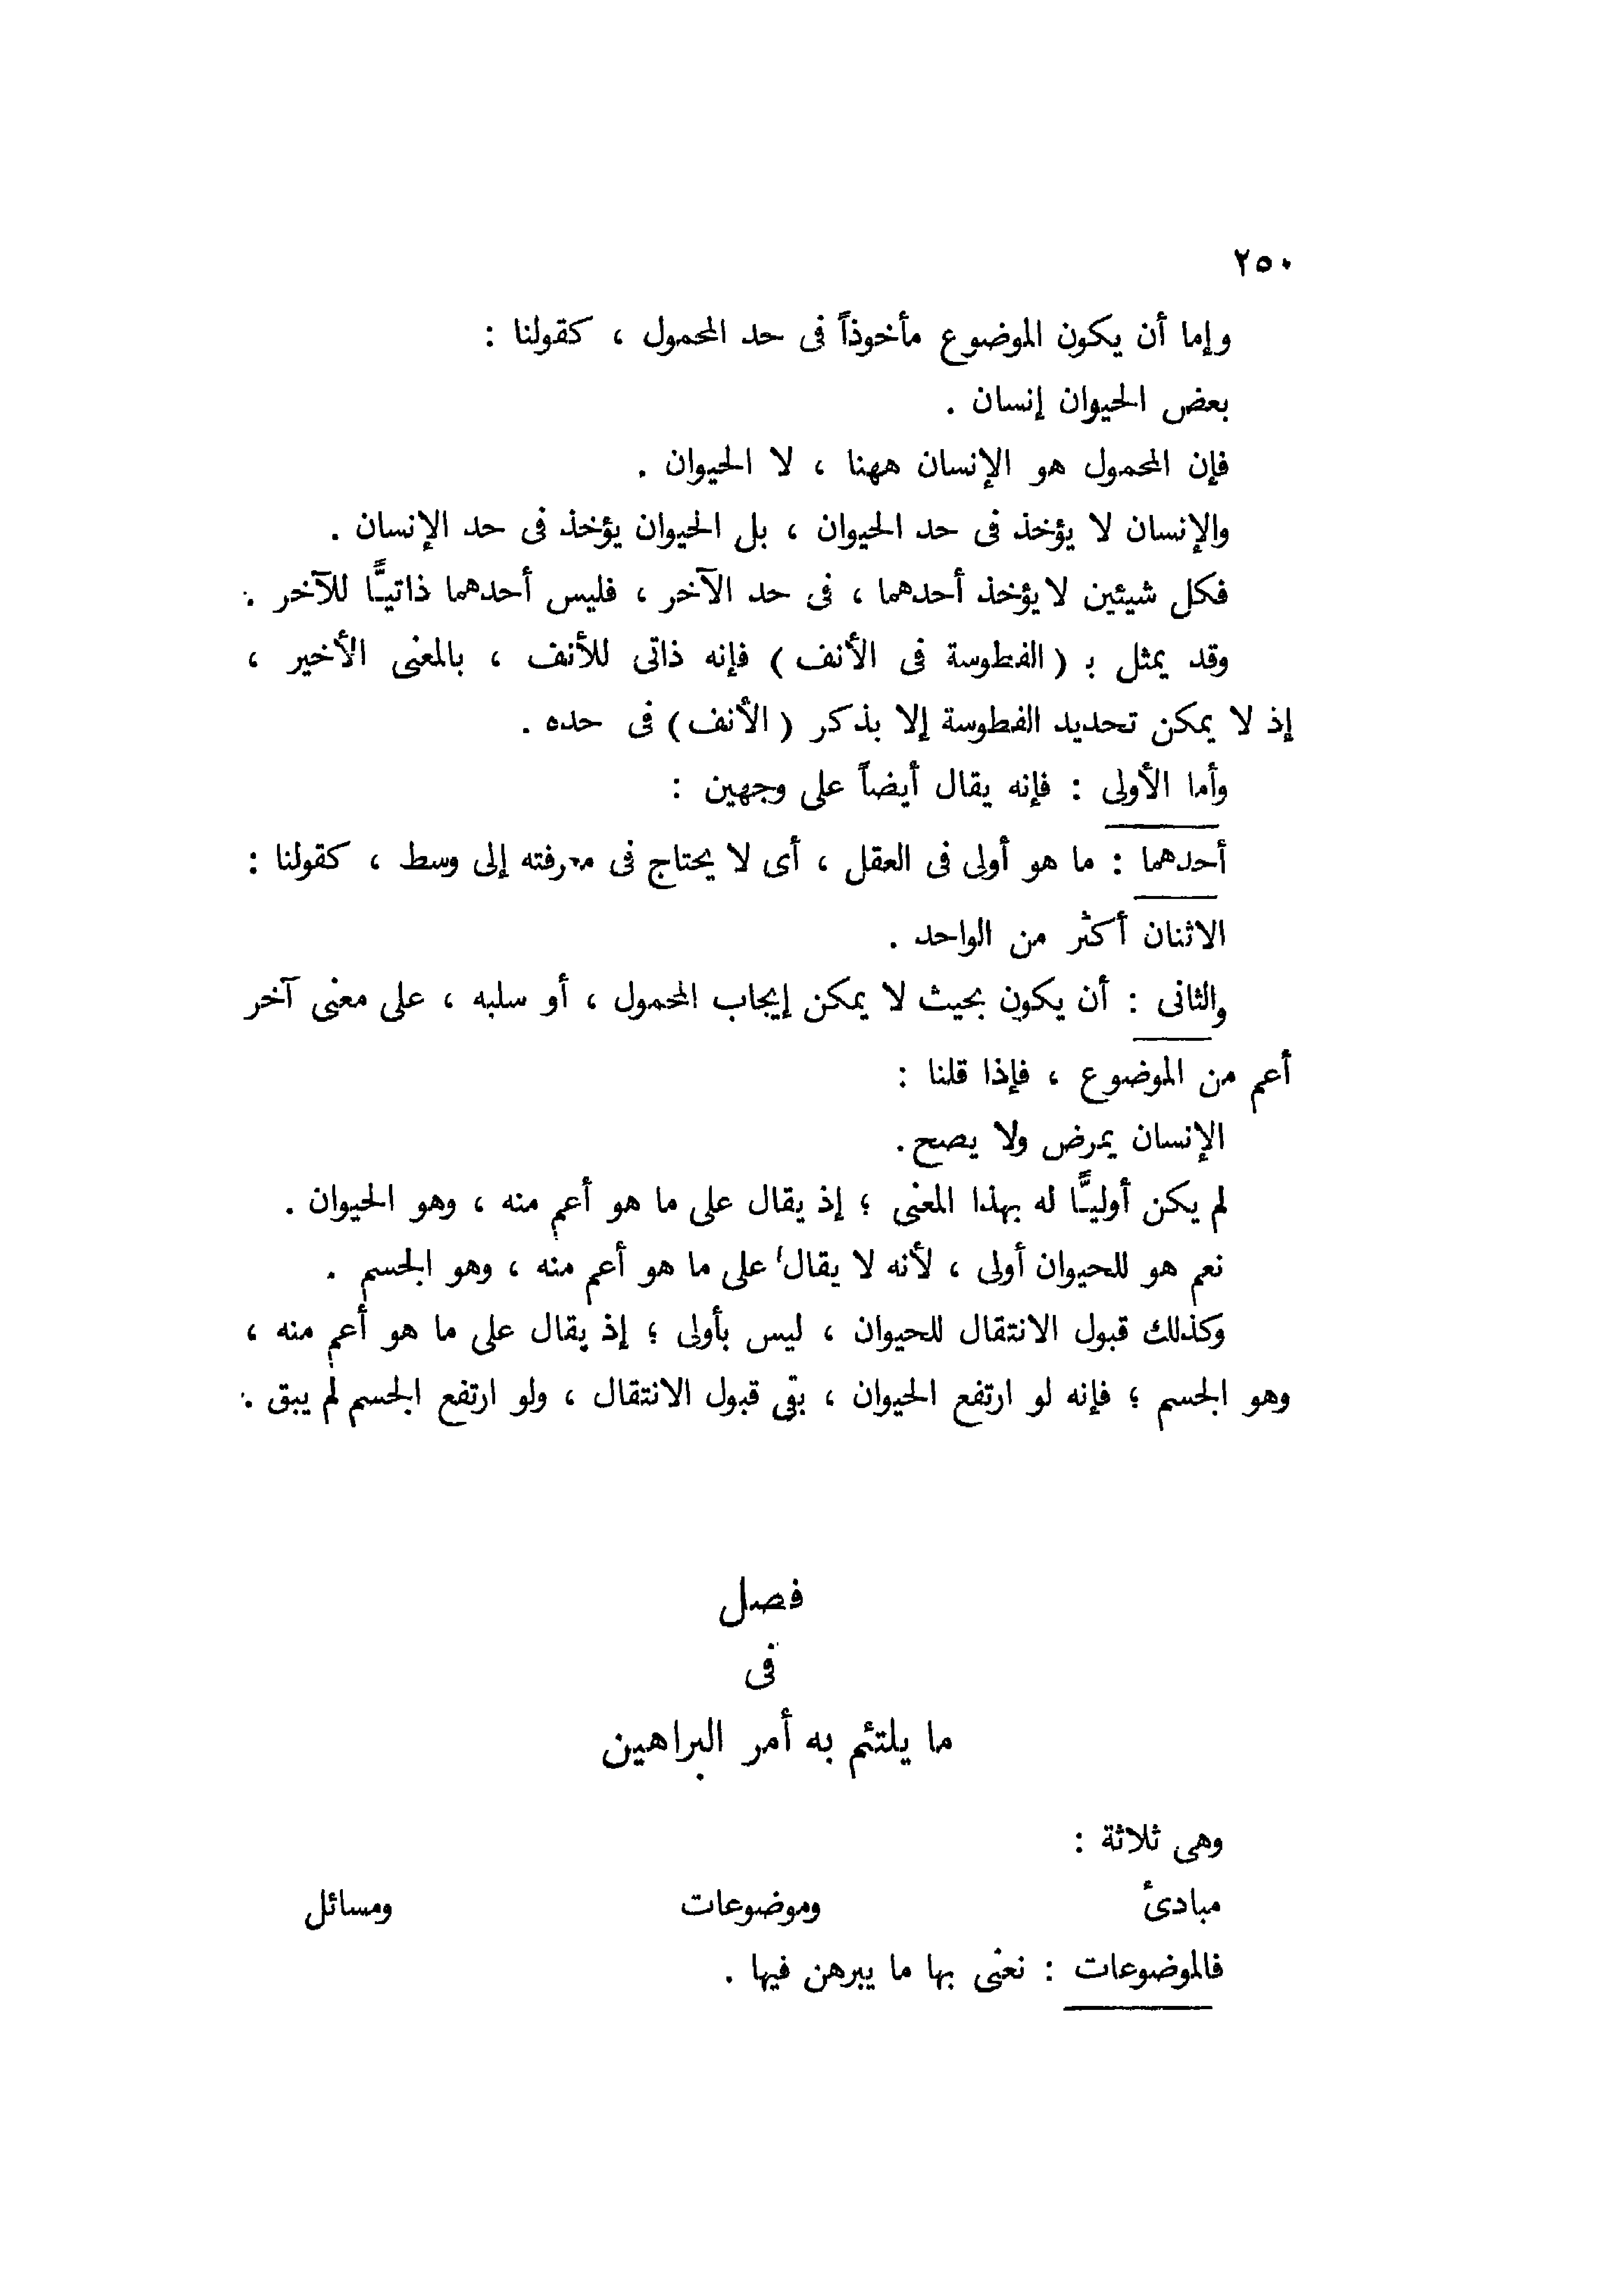 ٢٥٠
وإما أن يكون الموضوع مأخوذاً فى حد المحمول ، كقولنا :
بعض الحيوان إنسان .
فإن المحمول هو الإنسان ههنا ، لا الحيوان .
والإنسان لا يؤخذ فى حد الحيوان ، بل الحيوان يؤخذ فى حد الإنسان .
فكل شيئين لا يؤخذ أحدهما ، فى حد الآخر ، فليس أحدهما ذاتيًّا للآخر .
وقد يمثل بـ ( الفطوسة فى الأنف ) فإنه ذاتى للأنف ، بالمعنى الأخير ،
إذ لا يمكن تحديد الفطوسة إلا بذكر ( الأنف ) فى حده .
وأما الأولى : فإنه يقال أيضاً على وجهين :
أحدهما : ما هو أولى فى العقل ، أى لا يحتاج فى معرفته إلى وسط ، كقولنا :
الاثنان أكثر من الواحد .
والثانى : أن يكون بحيث لا يمكن إيجاب المحمول ، أو سلبه ، على معنى آخر
أعم من الموضوع ، فإذا قلنا :
الإنسان يمرض ولا يصح .
لم يكن أوليًّا له بهذا المعنى ؛ إذ يقال على ما هو أعم منه ، وهو الحيوان .
نعم هو للحيوان أولى ، لأنه لا يقال على ما هو أعم منه ، وهو الجسم .
وكذلك قبول الانتقال للحيوان ، ليس بأولى ؛ إذ يقال على ما هو أعم منه ،
وهو الجسم ؛ فإنه لو ارتفع الحيوان ، بقى قبول الانتقال ، ولو ارتفع الجسم لم يبق .
فصل
فى
ما يلتئم به أمر البراهين
وهى ثلاثة :
مبادئ وموضوعات ومسائل
فالموضوعات : نعنى بها ما يبرهن فيها .